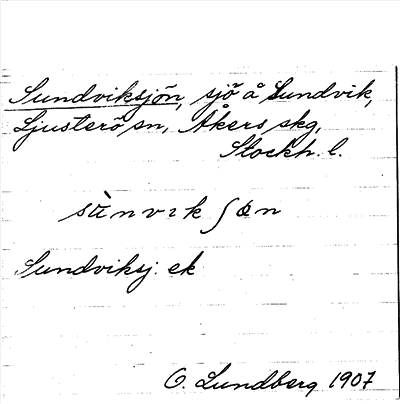 Sundviksjön, sjö å Sundvik,
Ljusterö sn, Åkers skg,
Stockh. l.
sùnvɩkʃœn
Sundviksj. ek
O. Lundberg 1907